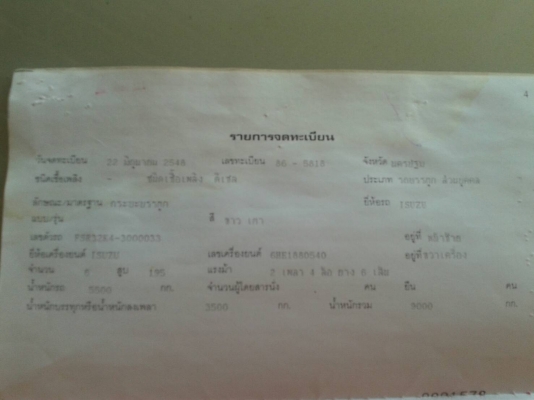 4
รายการจดทะเบียน
วันจดทะเบียน 22 มิถุนายน 2548 เลขทะเบียน 80 - 5812 จังหวัด นครปฐม
ชนิดเชื้อเพลิง - ชนิดเชื้อเพลิง ดีเซล ประเภท รถบรรทุก ส่วนบุคคล
ลักษณะ/มาตรฐาน กระบะบรรทุก ยี่ห้อรถ ISUZU
แบบ/รุ่น สี ขาว เทา
เลขตัวรถ FSR32G4-3000033 อยู่ที่ หน้าซ้าย
ยี่ห้อเครื่องยนต์ ISUZU เลขเครื่องยนต์ อยู่ที่ขวาเครื่อง
จำนวน 6 สูบ 195 แรงม้า 2 เพลา 4 ล้อ ยาง 6 เส้น
น้ำหนักรถ 5500 กก. จำนวนผู้โดยสารนั่ง คน ยืน คน
น้ำหนักบรรทุกหรือน้ำหนักลงเพลา 3500 กก. น้ำหนักรวม 9000 กก.